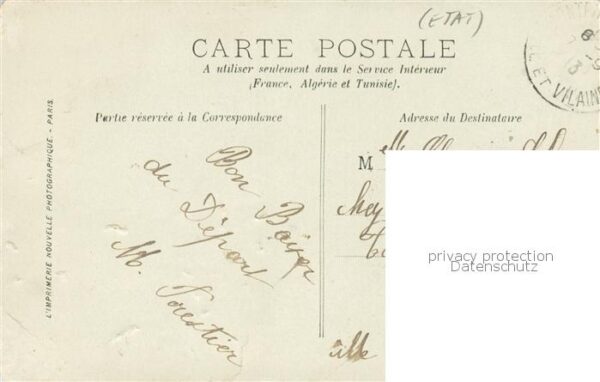 (ETAT)
CARTE POSTALE
A utiliser seulement dans le Service Intérieur
(France, Algérie et Tunisie).
ET VILAINE
Partie réservée à la Correspondance
Adresse du Destinataire
L'IMPRIMERIE NOUVELLE PHOTOGRAPHIQUE. - PARIS.
Bon Baiser
du Départ
M. Forestier
M
ville
privacy protection
Datenschutz